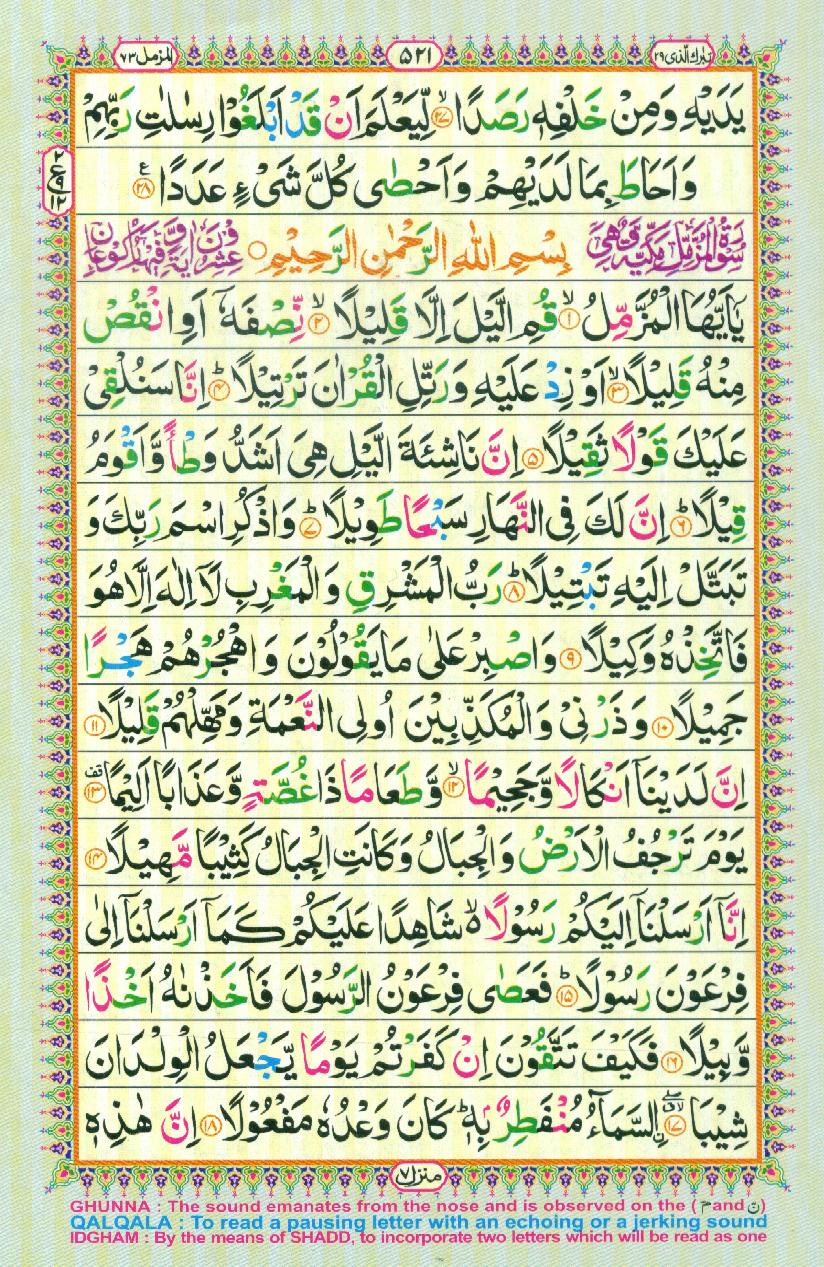 تبٰرك الّذى ٢٩
٥٢١
المزمل ٧٣
يَدَيْهِ وَمِنْ خَلْفِهٖ رَصَدًا ۙ﴿۲۷﴾ لِّيَعْلَمَ اَنْ قَدْ اَبْلَغُوْا رِسٰلٰتِ رَبِّهِمْ
وَاَحَاطَ بِمَا لَدَيْهِمْ وَاَحْصٰى كُلَّ شَىْءٍ عَدَدًا ﴿۲۸﴾ ع
٢
ع ٩
١٢
سُوْرَةُ الْمُزَّمِّلِ مَكِّيَّةٌ وَّهِىَ بِسْمِ اللهِ الرَّحْمٰنِ الرَّحِيْمِ ○ عِشْرُوْنَ اٰيَةً وَّفِيْهَا رُكُوْعَانِ
يٰۤاَيُّهَا الْمُزَّمِّلُ ۙ﴿۱﴾ قُمِ الَّيْلَ اِلَّا قَلِيْلًا ۙ﴿۲﴾ نِّصْفَهٗۤ اَوِ انْقُصْ
مِنْهُ قَلِيْلًا ۙ﴿۳﴾ اَوْ زِدْ عَلَيْهِ وَرَتِّلِ الْقُرْاٰنَ تَرْتِيْلًا ؕ﴿۴﴾ اِنَّا سَنُلْقِىْ
عَلَيْكَ قَوْلًا ثَقِيْلًا ﴿۵﴾ اِنَّ نَاشِئَةَ الَّيْلِ هِىَ اَشَدُّ وَطْاً وَّاَقْوَمُ
قِيْلًا ؕ﴿۶﴾ اِنَّ لَكَ فِى النَّهَارِ سَبْحًا طَوِيْلًا ؕ﴿۷﴾ وَاذْكُرِ اسْمَ رَبِّكَ وَ
تَبَتَّلْ اِلَيْهِ تَبْتِيْلًا ؕ﴿۸﴾ رَبُّ الْمَشْرِقِ وَالْمَغْرِبِ لَاۤ اِلٰهَ اِلَّا هُوَ
فَاتَّخِذْهُ وَكِيْلًا ﴿۹﴾ وَاصْبِرْ عَلٰى مَا يَقُوْلُوْنَ وَاهْجُرْهُمْ هَجْرًا
جَمِيْلًا ﴿۱۰﴾ وَذَرْنِىْ وَالْمُكَذِّبِيْنَ اُولِى النَّعْمَةِ وَمَهِّلْهُمْ قَلِيْلًا ﴿۱۱﴾
اِنَّ لَدَيْنَاۤ اَنْكَالًا وَّجَحِيْمًا ۙ﴿۱۲﴾ وَّطَعَامًا ذَا غُصَّةٍ وَّعَذَابًا اَلِيْمًا ﴿۱۳﴾ قف
يَوْمَ تَرْجُفُ الْاَرْضُ وَالْجِبَالُ وَكَانَتِ الْجِبَالُ كَثِيْبًا مَّهِيْلًا ﴿۱۴﴾
اِنَّاۤ اَرْسَلْنَاۤ اِلَيْكُمْ رَسُوْلًا ۵ شَاهِدًا عَلَيْكُمْ كَمَاۤ اَرْسَلْنَاۤ اِلٰى
فِرْعَوْنَ رَسُوْلًا ؕ﴿۱۵﴾ فَعَصٰى فِرْعَوْنُ الرَّسُوْلَ فَاَخَذْنٰهُ اَخْذًا
وَّبِيْلًا ﴿۱۶﴾ فَكَيْفَ تَتَّقُوْنَ اِنْ كَفَرْتُمْ يَوْمًا يَّجْعَلُ الْوِلْدَانَ
شِيْبَا ﴿۱۷﴾ السَّمَآءُ مُنْفَطِرٌۢ بِهٖ ؕ كَانَ وَعْدُهٗ مَفْعُوْلًا ﴿۱۸﴾ اِنَّ هٰذِهٖ
منزل ٧
GHUNNA : The sound emanates from the nose and is observed on the ( مّ and نّ )
QALQALA : To read a pausing letter with an echoing or a jerking sound
IDGHAM : By the means of SHADD, to incorporate two letters which will be read as one